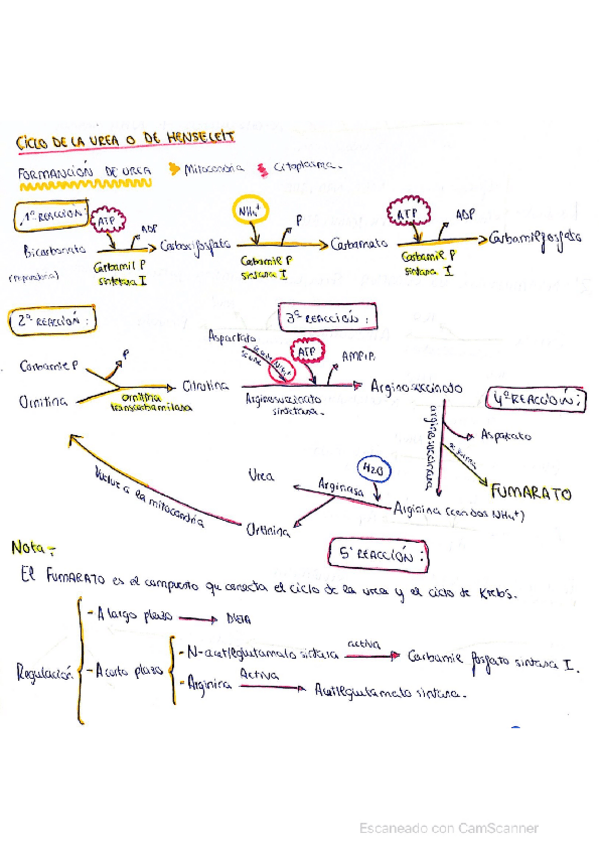 CICLO DE LA UREA O DE HENSELEIT
FORMANCIÓN DE UREA Mitocondria Citoplasma.
1º REACCIÓN:
ATP ADP NH4+ P ATP ADP
Bicarbonato Carboxifosfato Carbamato Carbamil fosfato
Carbamil P sintetasa I
Carbamil P sintasa I
Carbamil P sintasa I
2º REACCIÓN:
3º REACCIÓN:
Aspartato
NH4+
ATP
AMP
Carbamil P P
Ornitina
ornitina transcarbamilasa
Citrulina
Arginosuccinato sintetasa.
Arginosuccinato
4º REACCIÓN:
arginosuccinasa
Aspartato
FUMARATO
Arginina (con dos NH4+)
H2O
Arginasa
Urea
Ortinina
Vuelve a la mitocondria
5º REACCIÓN:
Nota:
El FUMARATO es el compuesto que conecta el ciclo de la urea y el ciclo de Krebs.
Regulación
- A largo plazo Dieta
- A corto plazo
- N-acetilglutamato sintasa activa Carbamil fosfato sintasa I.
- Arginina Activa Acetilglutamato sintasa.
Escaneado con CamScanner